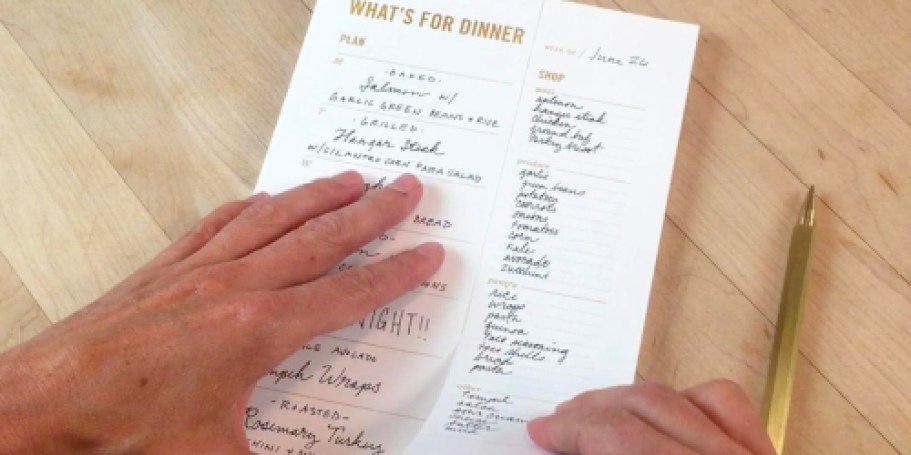 WHAT'S FOR DINNER
PLAN
M
-BAKED-
Salmon w/
GARLIC GREEN BEANS + RICE
T
-GRILLED-
Hangar Steak
W/CILANTRO CORN PASTA SALAD
W
BREAD
NIGHT!!
AVOCADO
Wraps
-ROASTED-
Rosemary Turkey
WEEK OF / June 26
SHOP
meat
salmon
hangar steak
chicken
ground beef
turkey breast
produce
garlic
green beans
potatoes
carrots
onions
tomatoes
corn
kale
avocado
zucchini
pantry
rice
wraps
pasta
quinoa
taco seasoning
taco shells
bread
pasta
other
Tempeh
salsa
sour cream
butter
milk